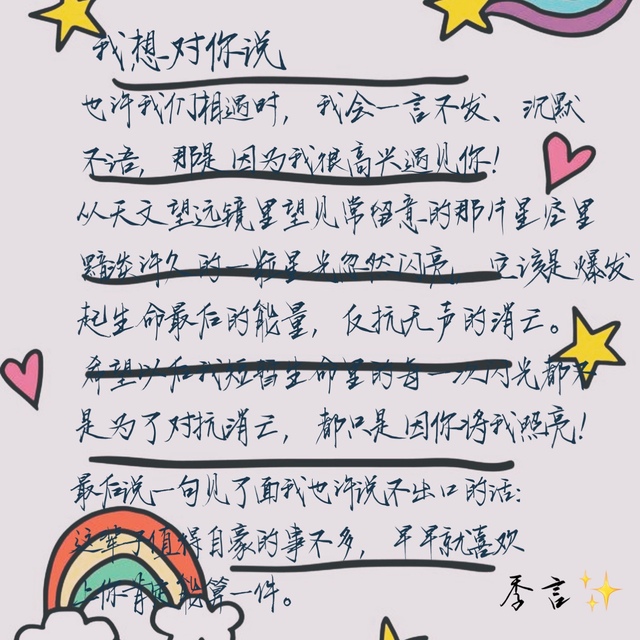 我想对你说
也许我们相遇时，我会一言不发、沉默
不语，那是因为我很高兴遇见你！
从天文望远镜里望见常留意的那片星座里
黯淡许久的一粒星光忽然闪亮，它该是爆发
起生命最后的能量，反抗无声的消亡。
希望以后我短暂生命里的每一次闪光都不
是为了对抗消亡，都只是因你将我照亮！
最后说一句见了面我也许说不出口的话：
这辈子值得自豪的事不多，早早就喜欢
上你肯定能算一件。
季言